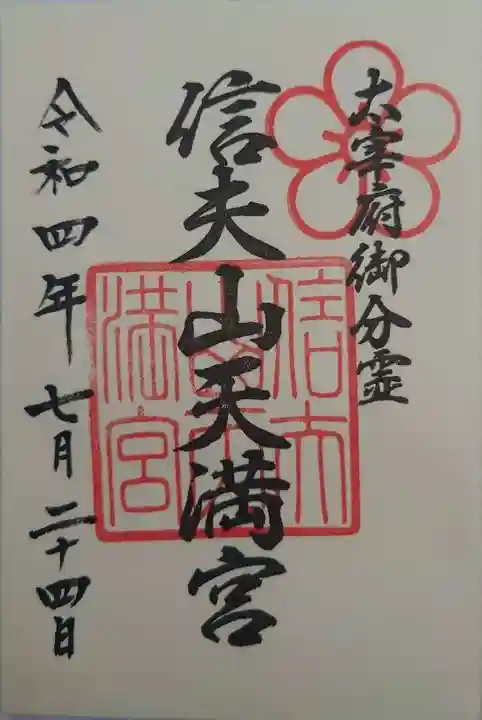 太宰府御分霊
信夫山天満宮
信夫山天満宮
令和四年七月二十四日